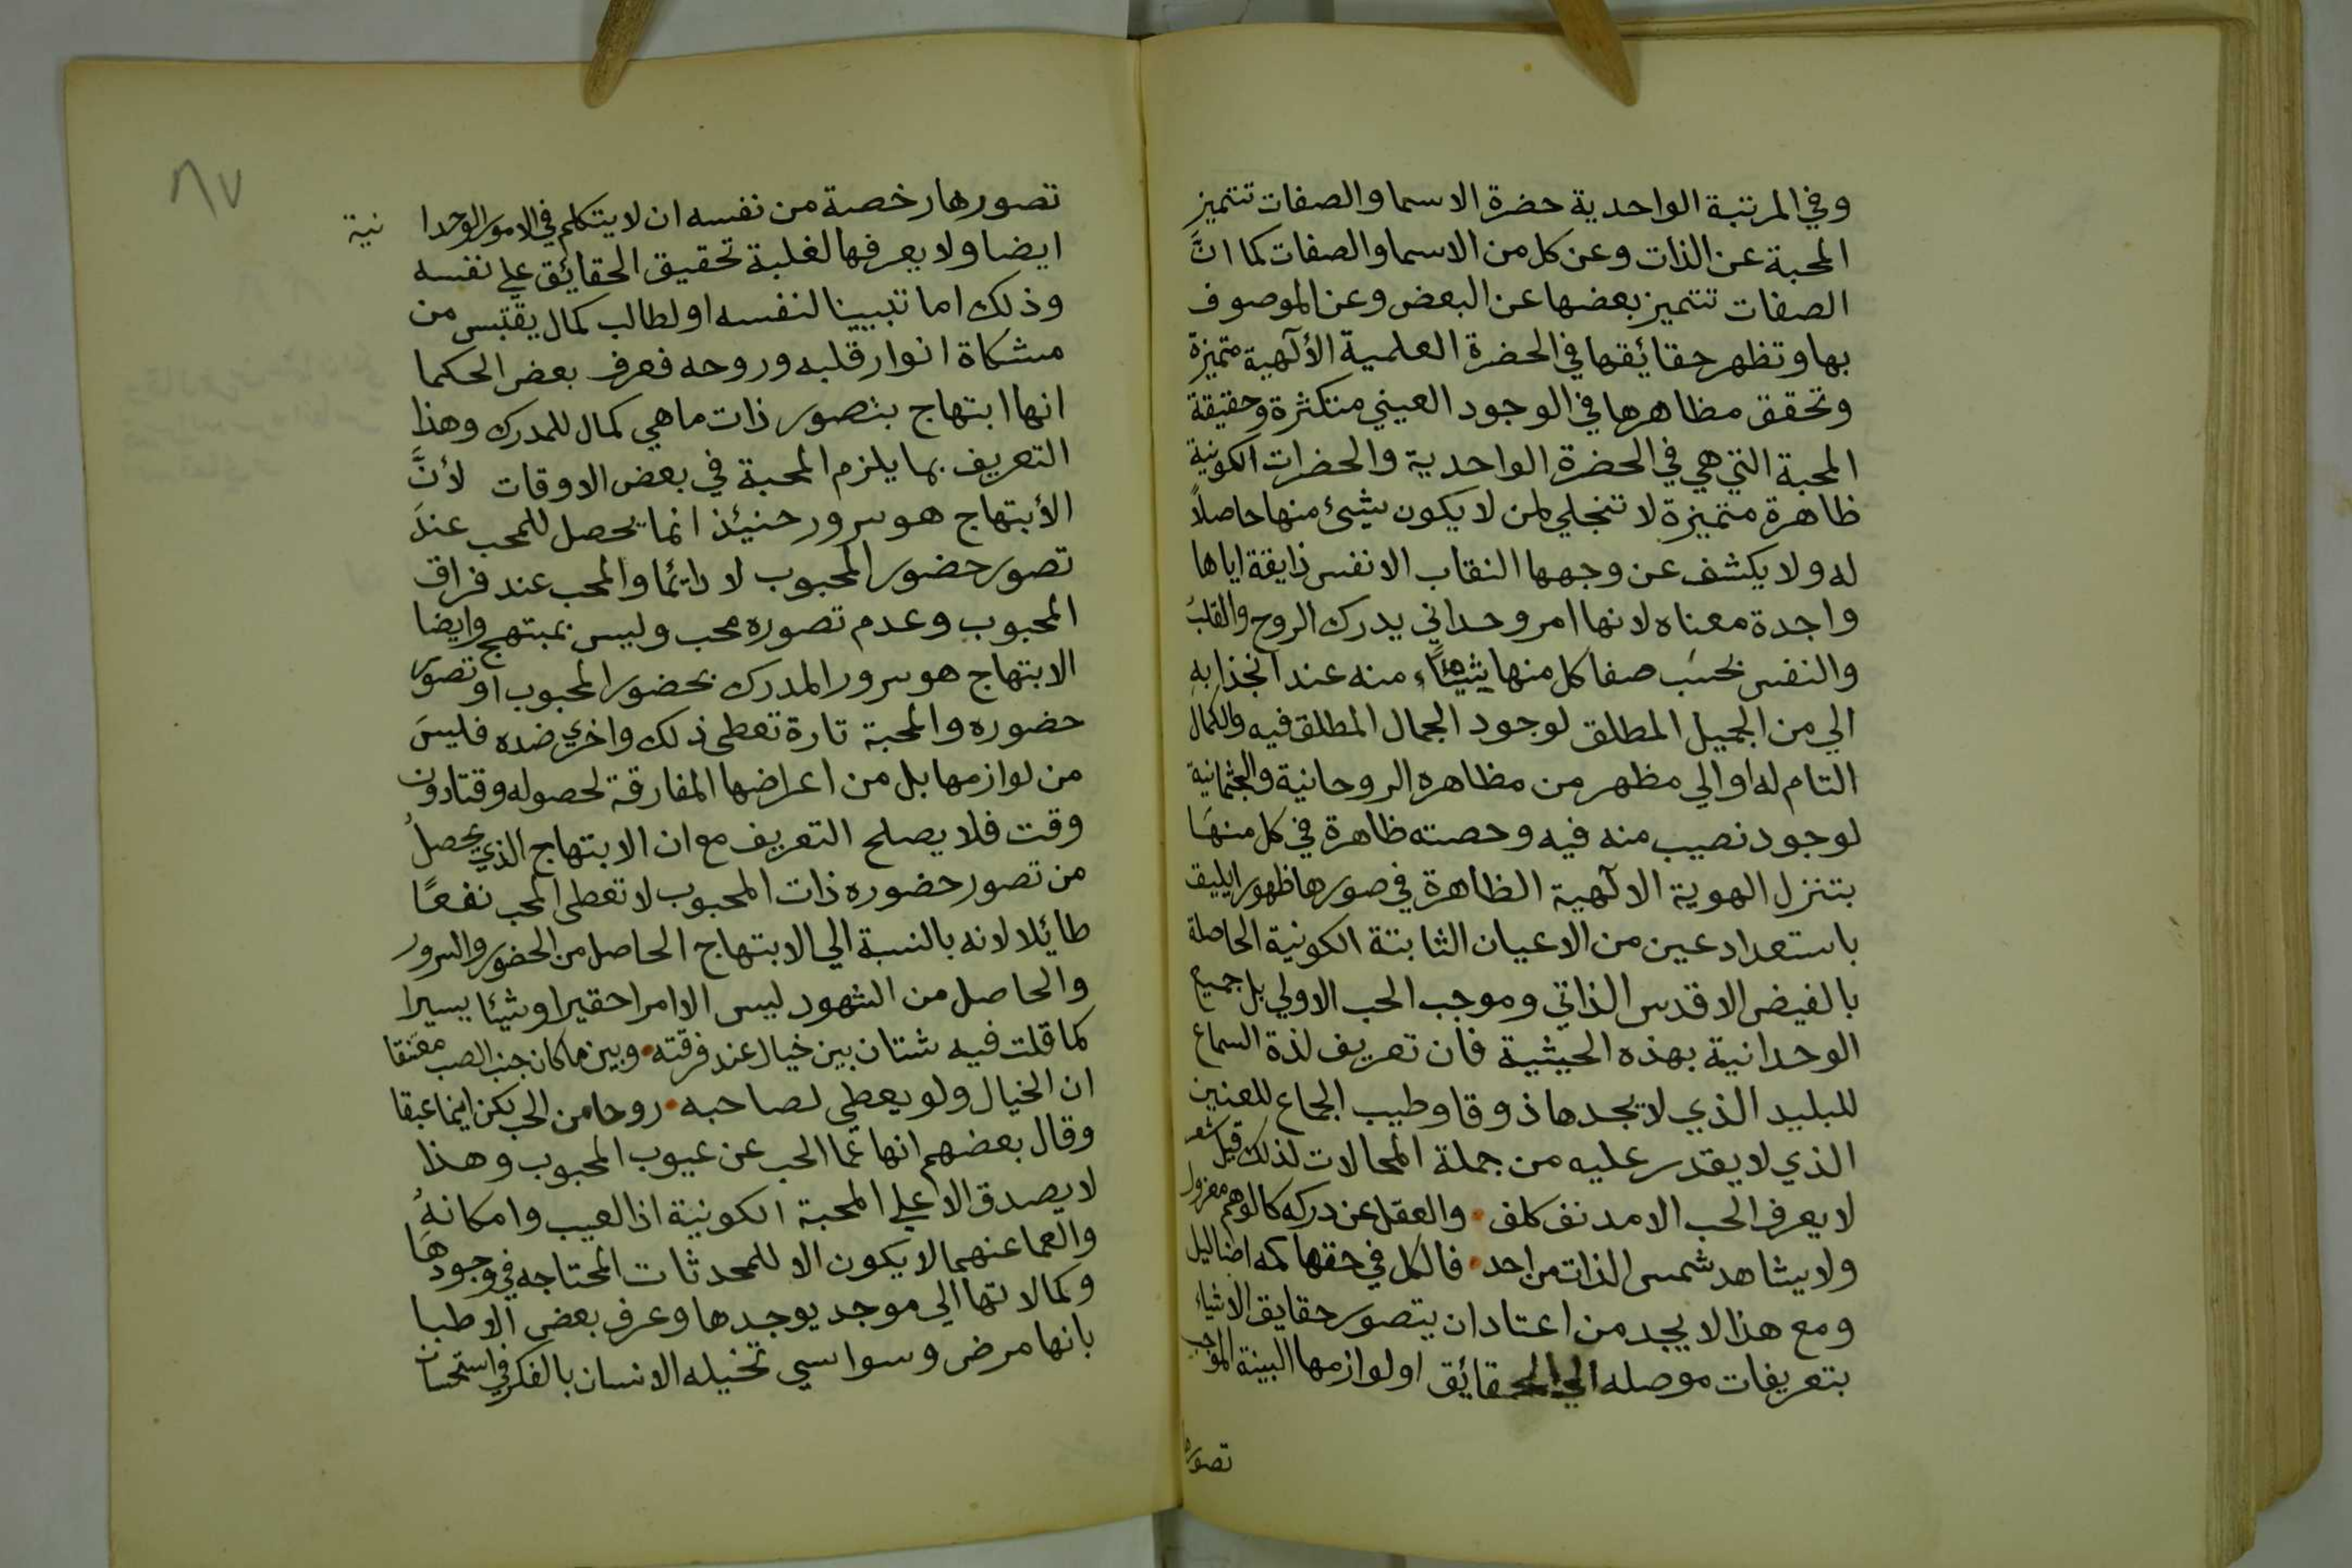 وفي المرتبة الواحدية حضرة الاسما والصفات تتميز
المحبة عن الذات وعن كل من الاسما والصفات كما انَّ
الصفات تتميز بعضها عن البعض وعن الموصوف
بها وتظهر حقائقها في الحضرة العلمية الألهية متميزة
وتحقق مظاهرها في الوجود العيني متكثرة وحقيقة
المحبة التي هي في الحضرة الواحدية والحضرات الكونية
ظاهرة متميزة لا تنجلي لمن لا يكون شيئ منها حاصلاً
له ولا يكشف عن وجهها النقاب الا نفس ذايقة اياها
واجدة معناه لانها امر وحداني يدرك الروح والقلب
والنفس بحسَب صفا كل منها شيئاً منه عند انجذابه
الي من الجميل المطلق لوجود الجمال المطلق فيه والكمال
التام له او الي مظهر من مظاهره الروحانية والجثمانية
لوجود نصيب منه فيه وحصته ظاهرة في كل منهَا
بتنزل الهوية الالهية الظاهرة في صورها ظهورا يليق
باستعداد عين من الاعيان الثابتة الكونية الحاصلة
بالفيض الاقدس الذاتي وموجب الحب الاولي بل جميع
الوحدانية بهذه الحيثية فان تعريف لذة السماع
للبليد الذي لا يجدها ذوقا وطيب الجماع للعنين
الذي لا يقدر عليه من جملة المحالات لذلك قيل شعر
لا يعرف الحب الا مدنف كلف • والعقل عن دركه كالوهم معزول
ولا يشاهد شمس الذات من احد • فالكل في حقها كمه اضاليل
ومع هذا لا يجد من اعتاد ان يتصور حقايق الاشياء
بتعريفات موصله الي الحقائق او لوازمها البينة الموجب
تصورها
٨٧
تصورها رخصة من نفسه ان لا يتكلم في الامور الوحدا نية
ايضا ولا يعرفها لغلبة تحقيق الحقائق علي نفسه
وذلك اما تبيينا لنفسه او لطالب كمال يقتبس من
مشكاة انوار قلبه وروحه فعرف بعض الحكما
انها ابتهاج بتصور ذات ما هي كمال للمدرك وهذا
التعريف بما يلزم المحبة في بعض الاوقات لأنَّ
الأبتهاج هو سرور حنيئذ انما يحصل للمحب عندَ
تصور حضور المحبوب لا دائما والمحب عند فراق
المحبوب وعدم تصوره محب وليس بمبتهج وايضا
الابتهاج هو سرور المدرك بحضور المحبوب او تصور
حضوره والمحبة تارة تعطي ذلك واخري ضده فليسَ
من لوازمها بل من اعراضها المفارقة لحصوله وقتا دون
وقت فلا يصلح التعريف مع ان الابتهاج الذي يحصل
من تصور حضوره ذات المحبوب لا تعطي المحب نفعًا
طائلا لانه بالنسبة الي الابتهاج الحاصل من الحضور والسرور
والحاصل من الشهود ليس الا امرا حقيرا وشيئا يسيرا
كما قلت فيه شتان بين خيال عند فرقته • وبين ما كان جنب الصب معتنقا
ان الخيال ولو يعطي لصاحبه • روحا من الحب يكن اينما عبقا
وقال بعضهم انها عما الحب عن عيوب المحبوب وهذا
لا يصدق الا علي المحبة الكونية اذ العيب وامكانهُ
والعما عنهما لا يكون الا للمحدثات المحتاجه في وجودهَا
وكمالاتها الي موجد يوجدها وعرف بعض الاطبا
بانها مرض وسواسي تخيله الانسان بالفكر في استحسان